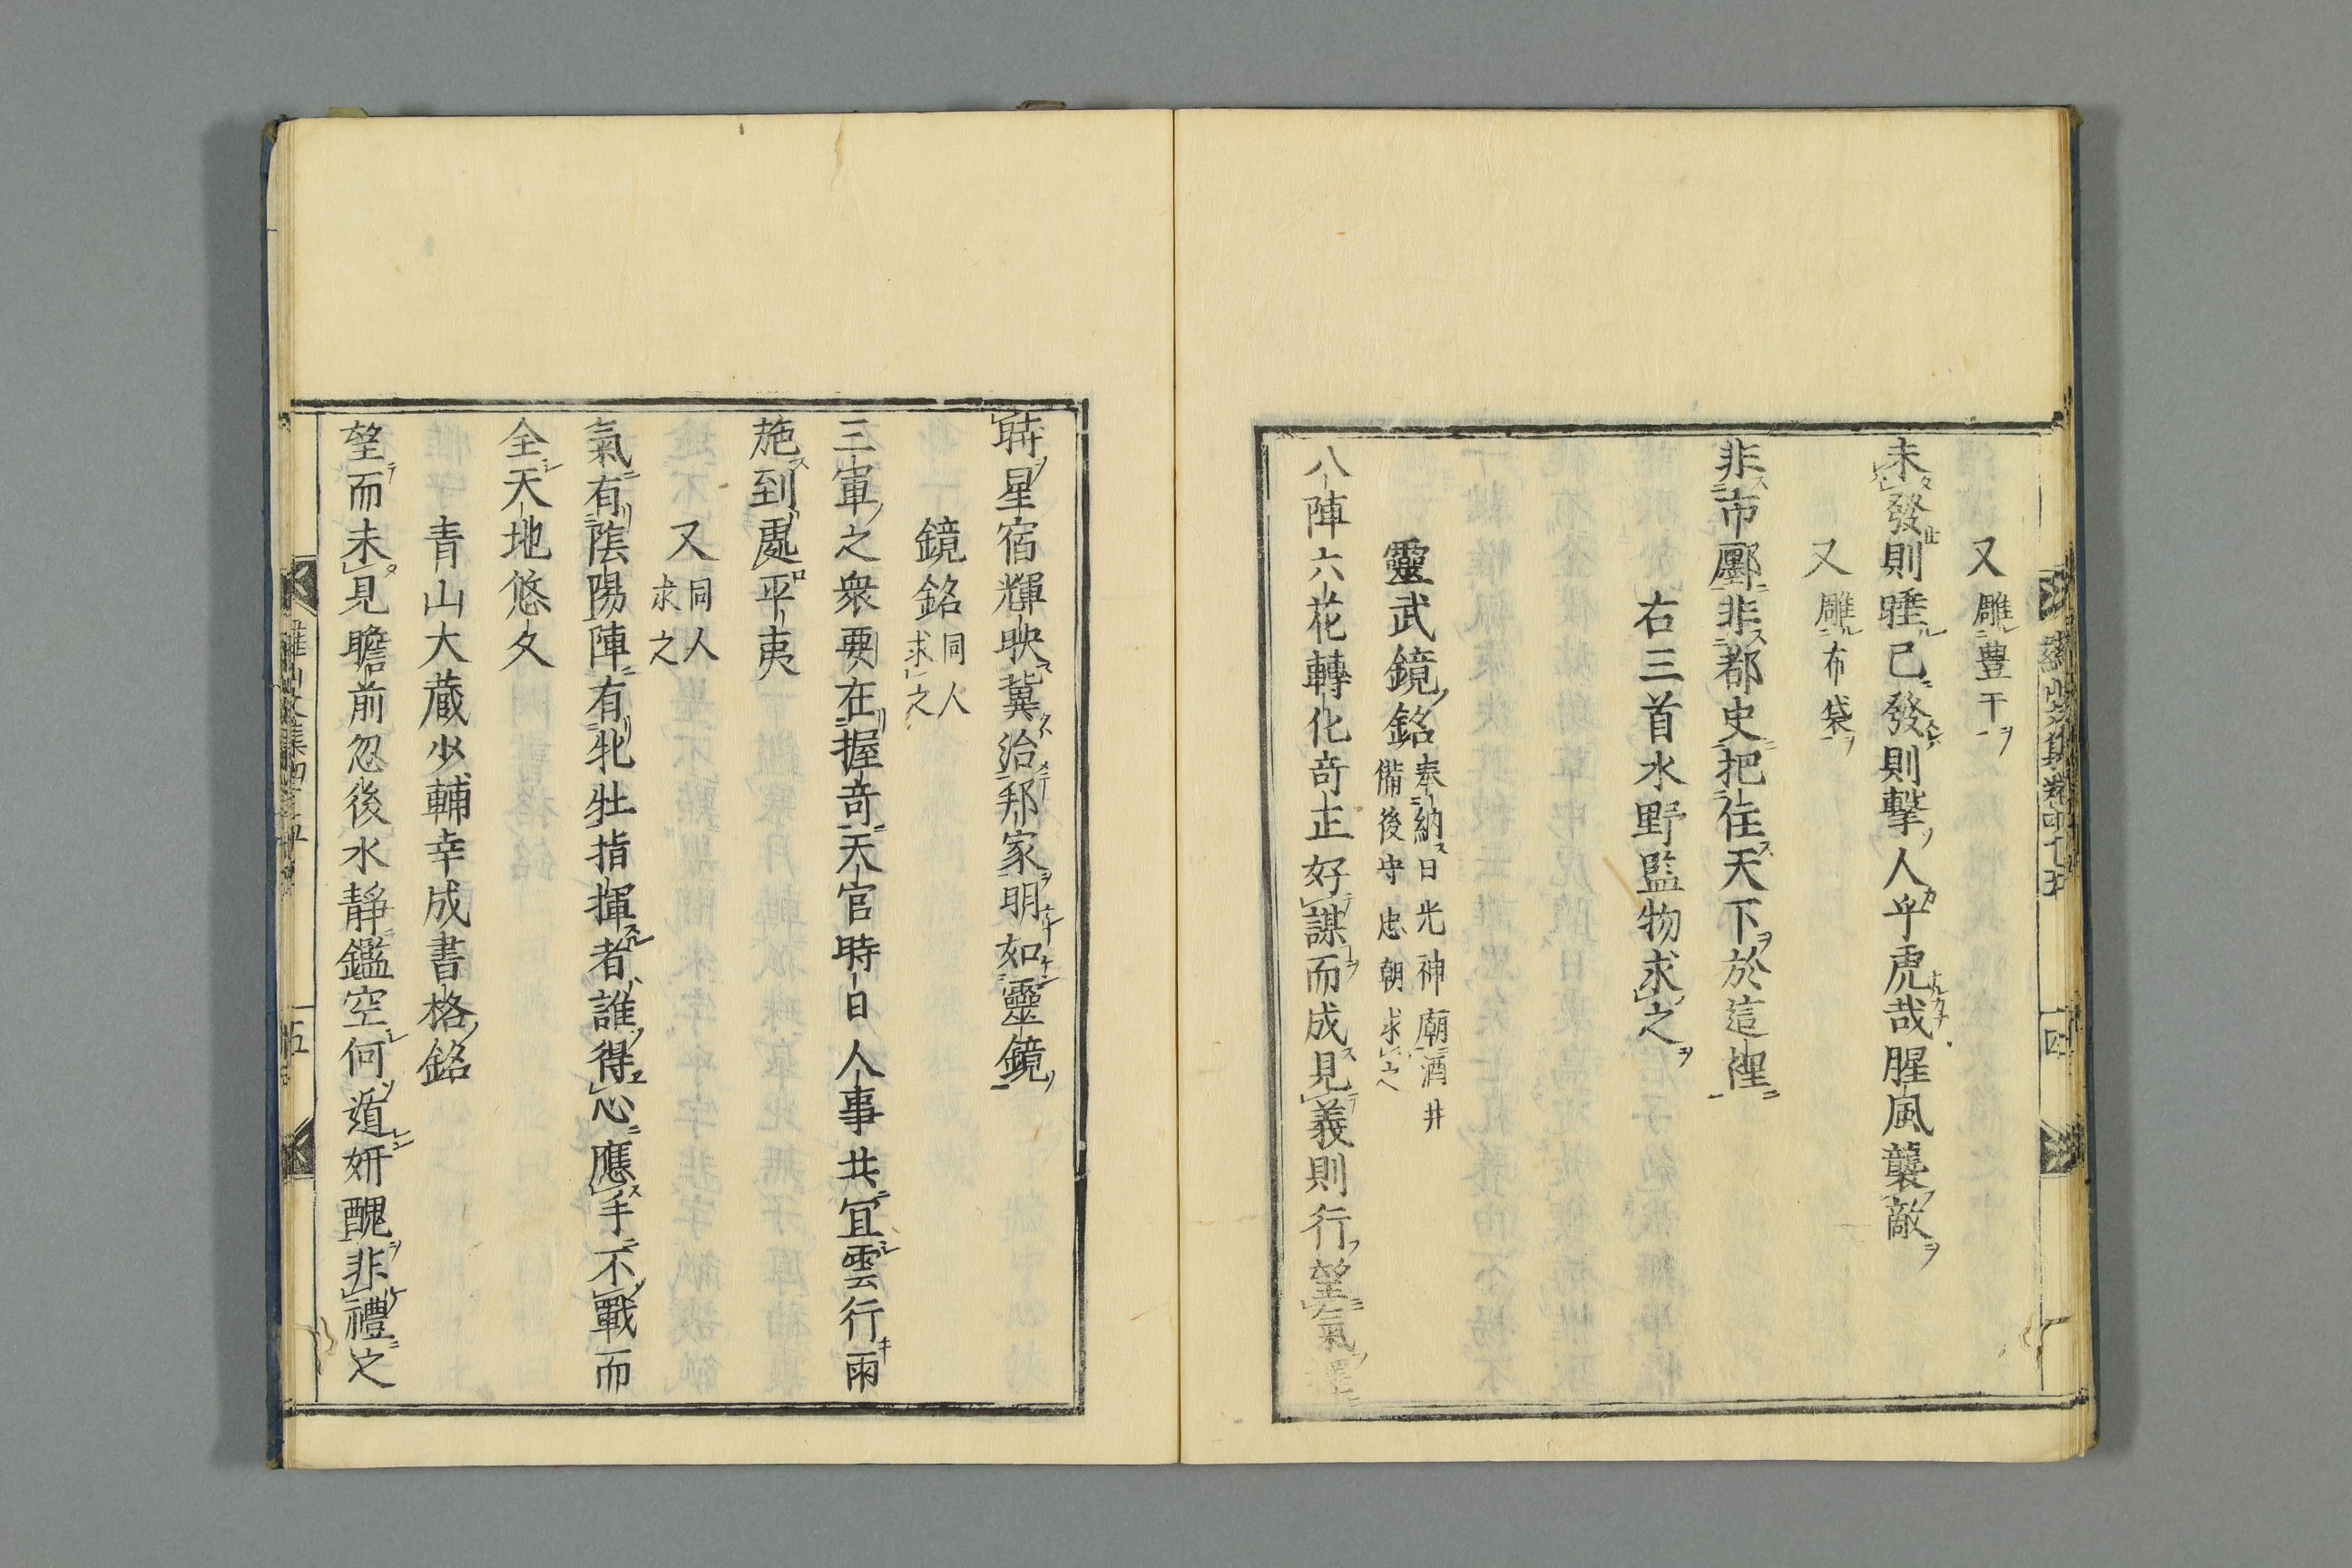 又雕豊干
未發則睡已發則擊人乎虎哉腥風襲敵
又雕布袋
非市鄽非都史把住天下於這裡
右三首水野監物求之
靈武鏡銘奉納日光神廟酒井
備後守忠朝求之
八陣六花轉化奇正好謀而成見義則行望氣擇
時星宿輝映冀治邦家明如靈鏡
鏡銘同人
求之
三軍之衆要在握奇天官時日人事共宜雲行雨
施到處平夷
又同人
求之
氣有陰陽陣有牝牡指揮者誰得心應手不戰而
全天地悠久
青山大蔵少輔幸成書格銘
望而未見瞻前忽後水靜鑑空何遁妍醜非禮之
五